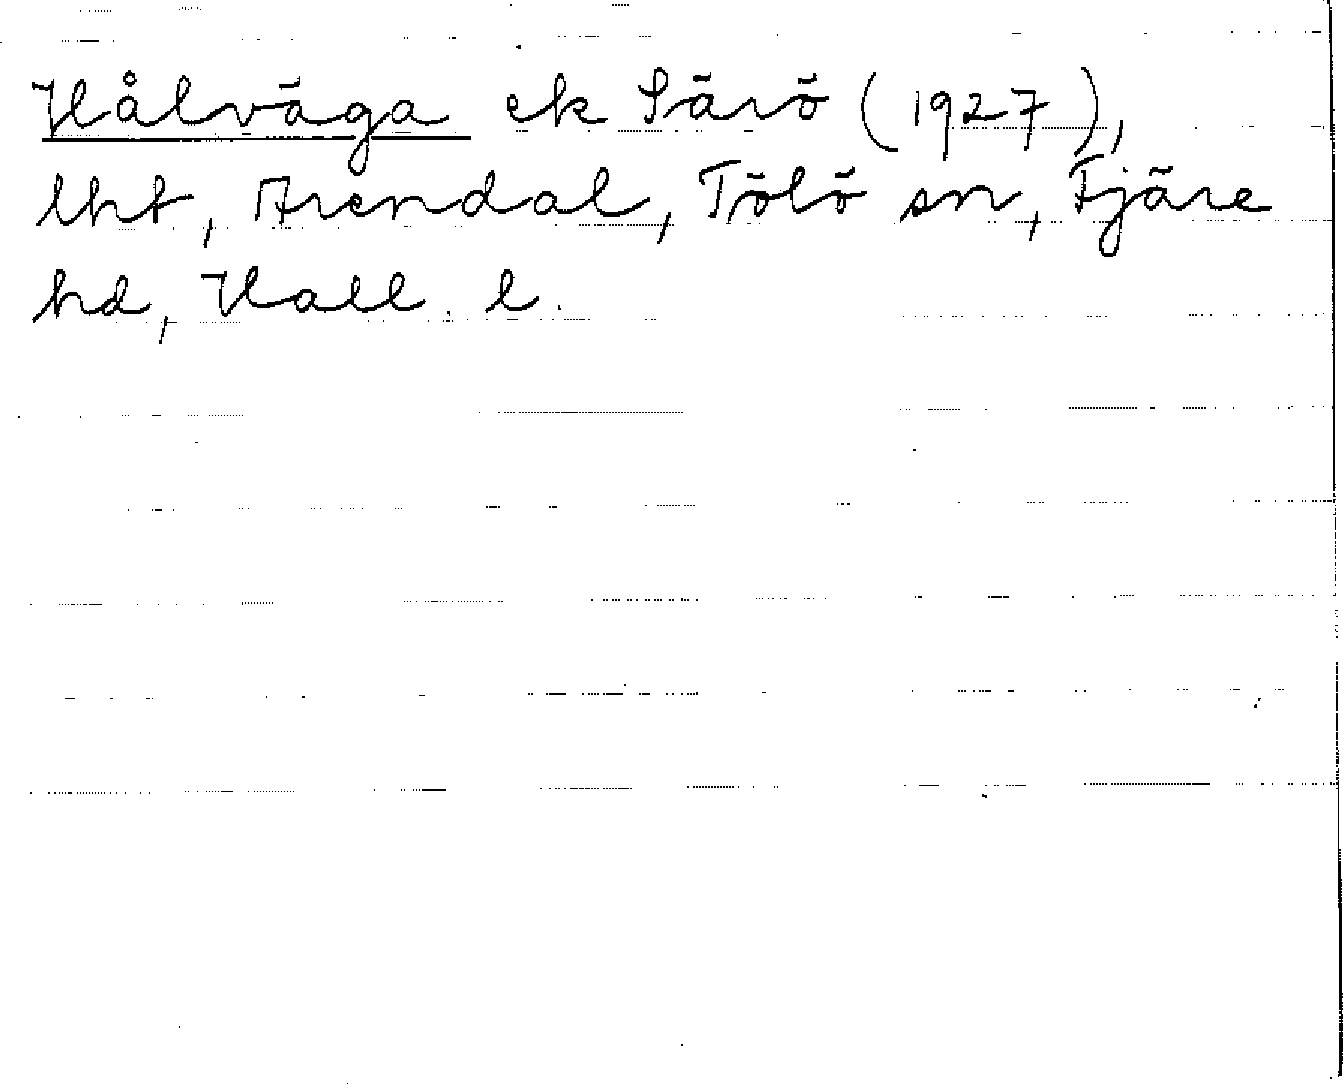 Hålväga ek Särö (1927),
lht, Arendal, Tölö sn, Fjäre
hd, Hall. l.